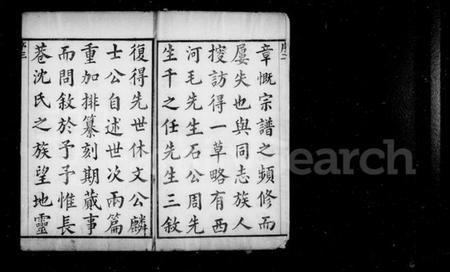 序二
章慨宗譜之頻修而
屢失也與同志族人
搜訪得一草略有西
河毛先生石公周先
生千之任先生三敘
復得先世休文公麟
士公自述世次兩篇
重加排纂刻期蕆事
而問敘於予予惟長
巷沈氏之族望地靈
序三